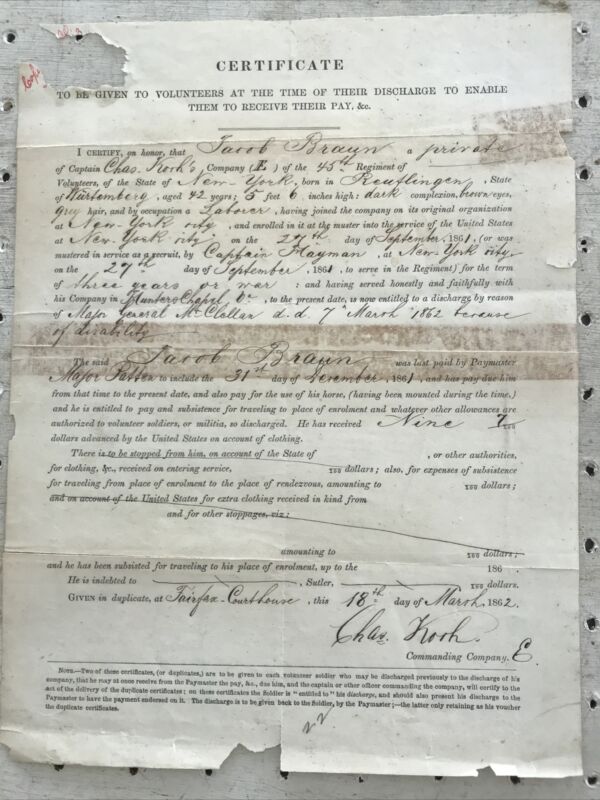 Copy No. 3
CERTIFICATE
TO BE GIVEN TO VOLUNTEERS AT THE TIME OF THEIR DISCHARGE TO ENABLE
THEM TO RECEIVE THEIR PAY, &c.
I CERTIFY, on honor, that Jacob Braun a private
of Captain Chas. Koch's Company (E) of the 45th Regiment of
Volunteers, of the State of New-York, born in Reutlingen, State
of Würtemberg, aged 42 years; 5 feet 6 inches high: dark complexion, brown eyes,
grey hair, and by occupation a Laborer, having joined the company on its original organization
at New-York city, and enrolled in it at the muster into the service of the United States
at New-York city, on the 27th day of September, 1861, (or was
mustered in service as a recruit, by Captain Hayman, at New-York city,
on the 27th day of September 1861, to serve in the Regiment) for the term
of three years or war: and having served honestly and faithfully with
his Company in Hunters Chapel Va, to the present date, is now entitled to a discharge by reason
of Major General McClellan d.d. 7 March 1862 because
of disability
The said Jacob Braun was last paid by Paymaster
Major Patten to include the 31st day of December, 1861, and has pay due him
from that time to the present date, and also pay for the use of his horse, (having been mounted during the time,)
and he is entitled to pay and subsistence for traveling to place of enrolment and whatever other allowances are
authorized to volunteer soldiers, or militia, so discharged. He has received Nine 7/100
dollars advanced by the United States on account of clothing.
There is to be stopped from him, on account of the State of , or other authorities,
for clothing, &c., received on entering service, /100 dollars; also, for expenses of subsistence
for traveling from place of enrolment to the place of rendezvous, amounting to /100 dollars;
and on account of the United States for extra clothing received in kind from
and for other stoppages, viz:
amounting to /100 dollars;
and he has been subsisted for traveling to his place of enrolment, up to the 186 .
He is indebted to , Sutler, /100 dollars.
GIVEN in duplicate, at Fairfax-Courthouse, this 18th day of March, 1862.
Chas. Koch.
Commanding Company, E
NOTE.—Two of these certificates, (or duplicates,) are to be given to each volunteer soldier who may be discharged previously to the discharge of his
company, that he may at once receive from the Paymaster the pay, &c., due him, and the captain or other officer commanding the company, will certify to the
act of the delivery of the duplicate certificates; on these certificates the Soldier is "entitled to" his discharge, and should also present his discharge to the
Paymaster to have the payment endorsed on it. The discharge is to be given back to the Soldier, by the Paymaster;—the latter only retaining as his voucher
the duplicate certificates.